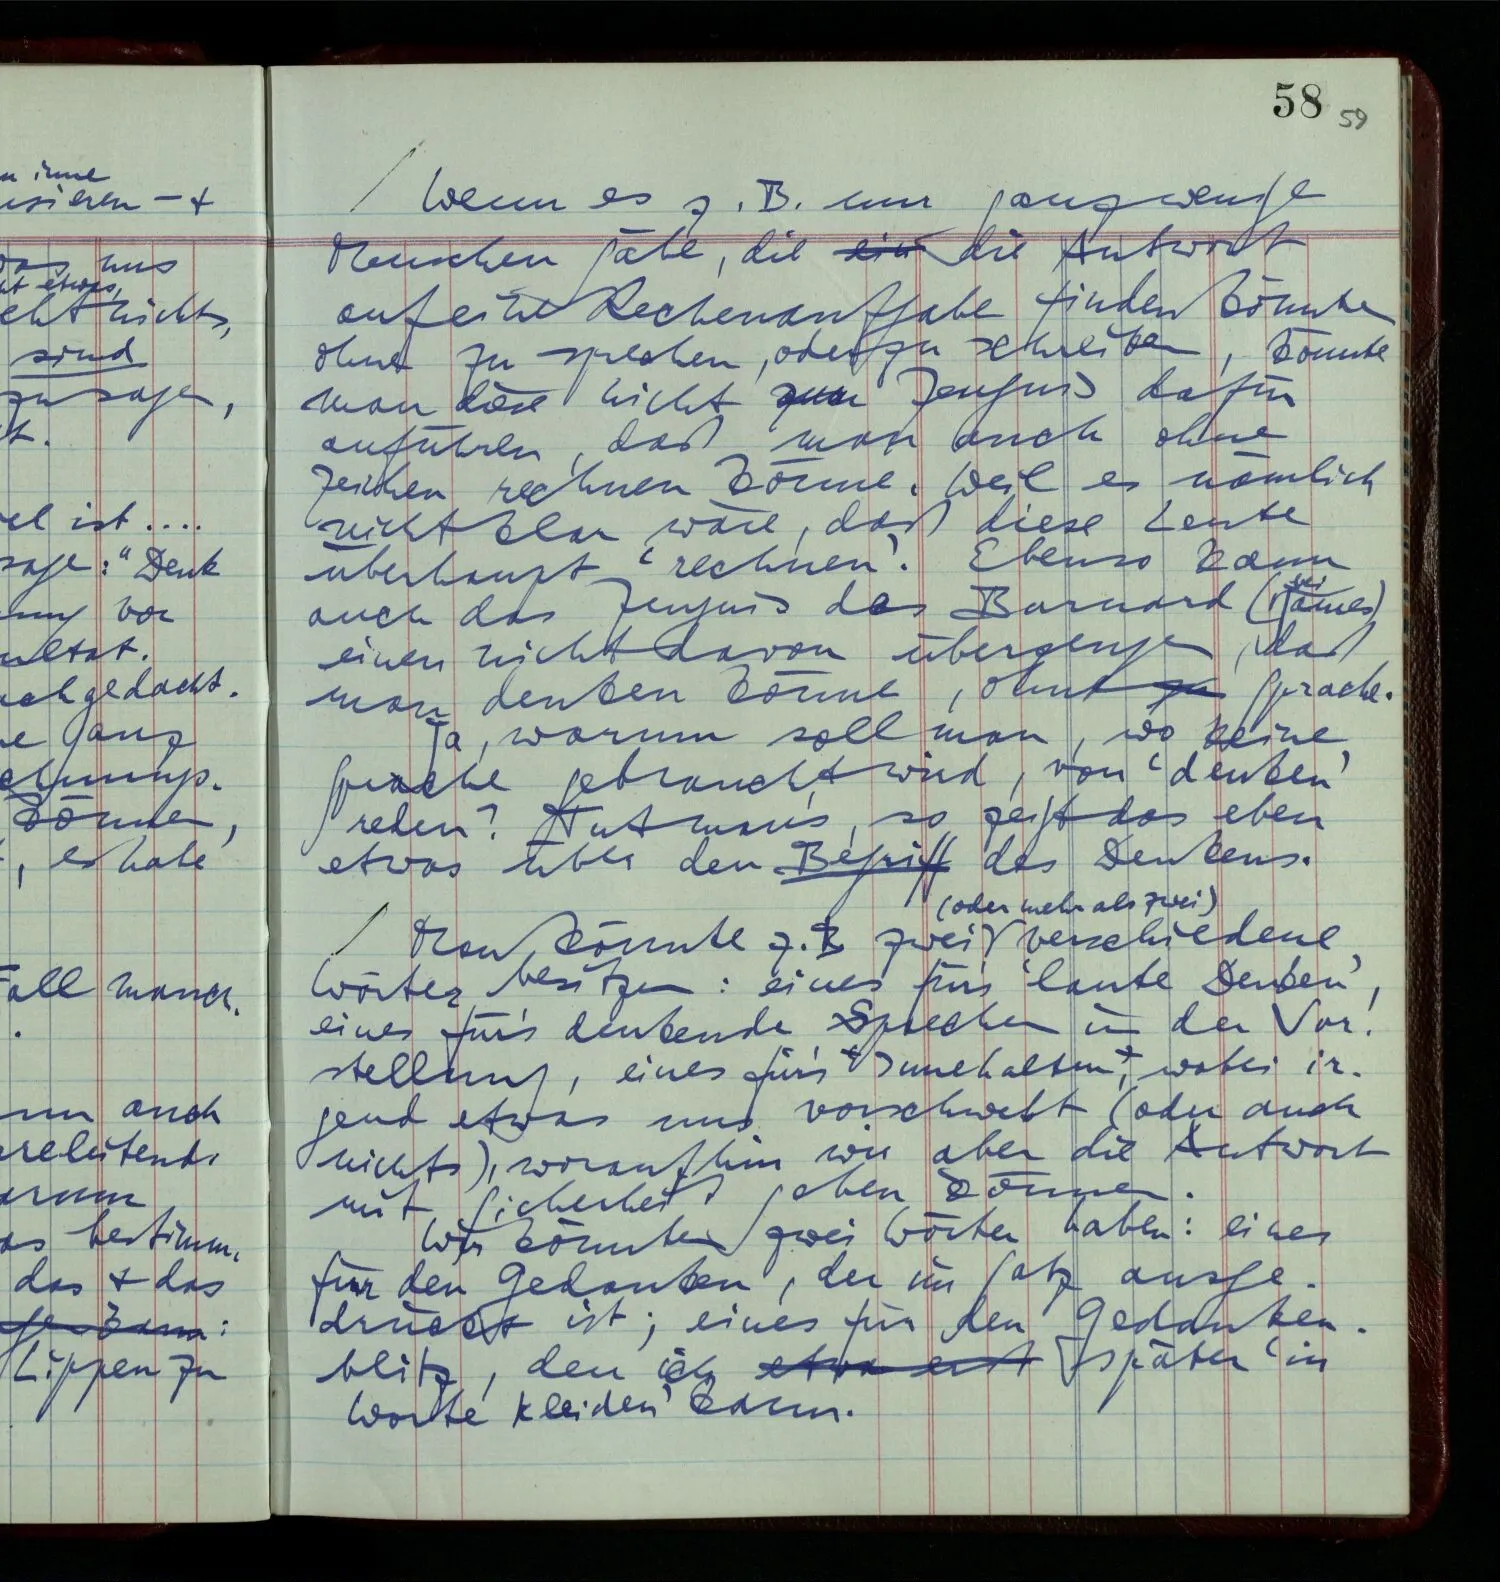 n inne
isieren — +
das uns
ht etwas,
eht nichts,
sind
zu sagen,
t.
el ist ....
sage: "Denk
ung vor
ultat.
achgedacht.
e ganz
chnungs.
können,
, es habe
Fall manch.
.
nn auch
releitende
arum
as bestimm.
das + das
gen kann:
Lippen zu
58 59
/ Wenn es z. B. nur ganz wenige
Menschen gäbe, die ein die Antwort
auf eine Rechenaufgabe finden könnte
ohne zu sprechen, oder zu schreiben, könnte
man diese nicht zum Zeugnis dafür
anführen, daß man auch ohne
Zeichen rechnen könne. Weil es nämlich
nicht klar wäre, daß diese Leute
überhaupt 'rechnen'. Ebenso kann
auch das Zeugnis des Barnard (bei James)
einen nicht davon überzeugen, daß
man denken könne, ohne zu Sprache.
Ja, warum soll man, wo keine
Sprache gebraucht wird, von 'denken'
reden? Tut man's, so zeigt das eben
etwas über den Begriff des Denkens.
(oder mehr als zwei)
/ Man könnte z.B zwei verschiedene
Wörter besitzen: eines für's 'laute Denken',
eines für's denkende Sprechen in der Vor-
stellung, eines für's Innehalten, wobei ir-
gend etwas uns vorschwebt (oder auch
nichts), woraufhin wir aber die Antwort
mit Sicherheit geben können.
Wir könnten zwei Wörter haben: eines
für den Gedanken, der im Satz ausge-
drückt ist; eines für den Gedanken-
blitz, den ich etwa erst später 'in
Worte kleiden' kann.